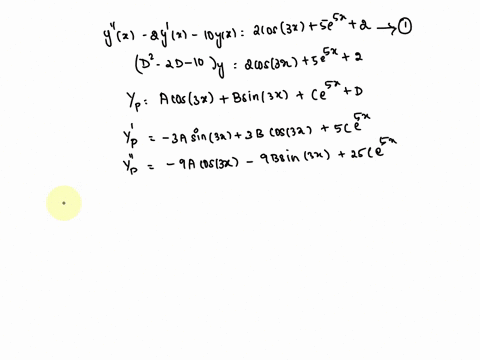 y''(x) - 2y'(x) - 10y(x) : 2cos(3x) + 5e^5x + 2 → ①
(D² - 2D - 10)y : 2cos(3x) + 5e^5x + 2
Yp : Acos(3x) + Bsin(3x) + Ce^5x + D
Yp' = -3A sin(3x) + 3B cos(3x) + 5Ce^5x
Yp'' = -9A cos(3x) - 9B sin(3x) + 25Ce^5x